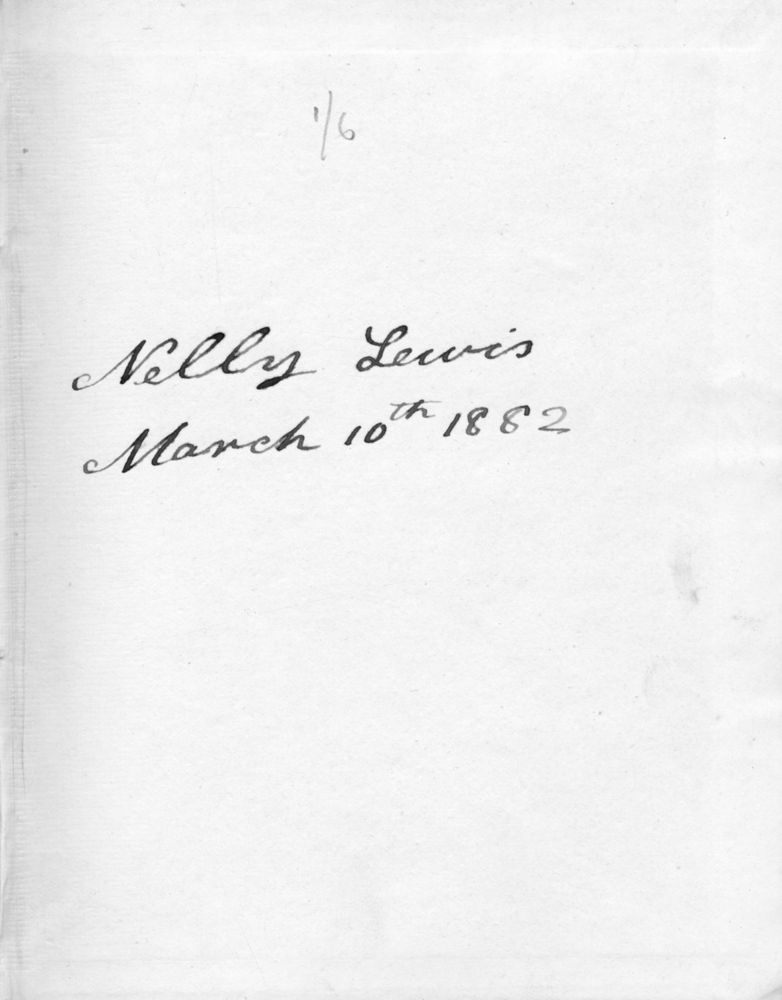 1/6
Nelly Lewis
March 10th 1882